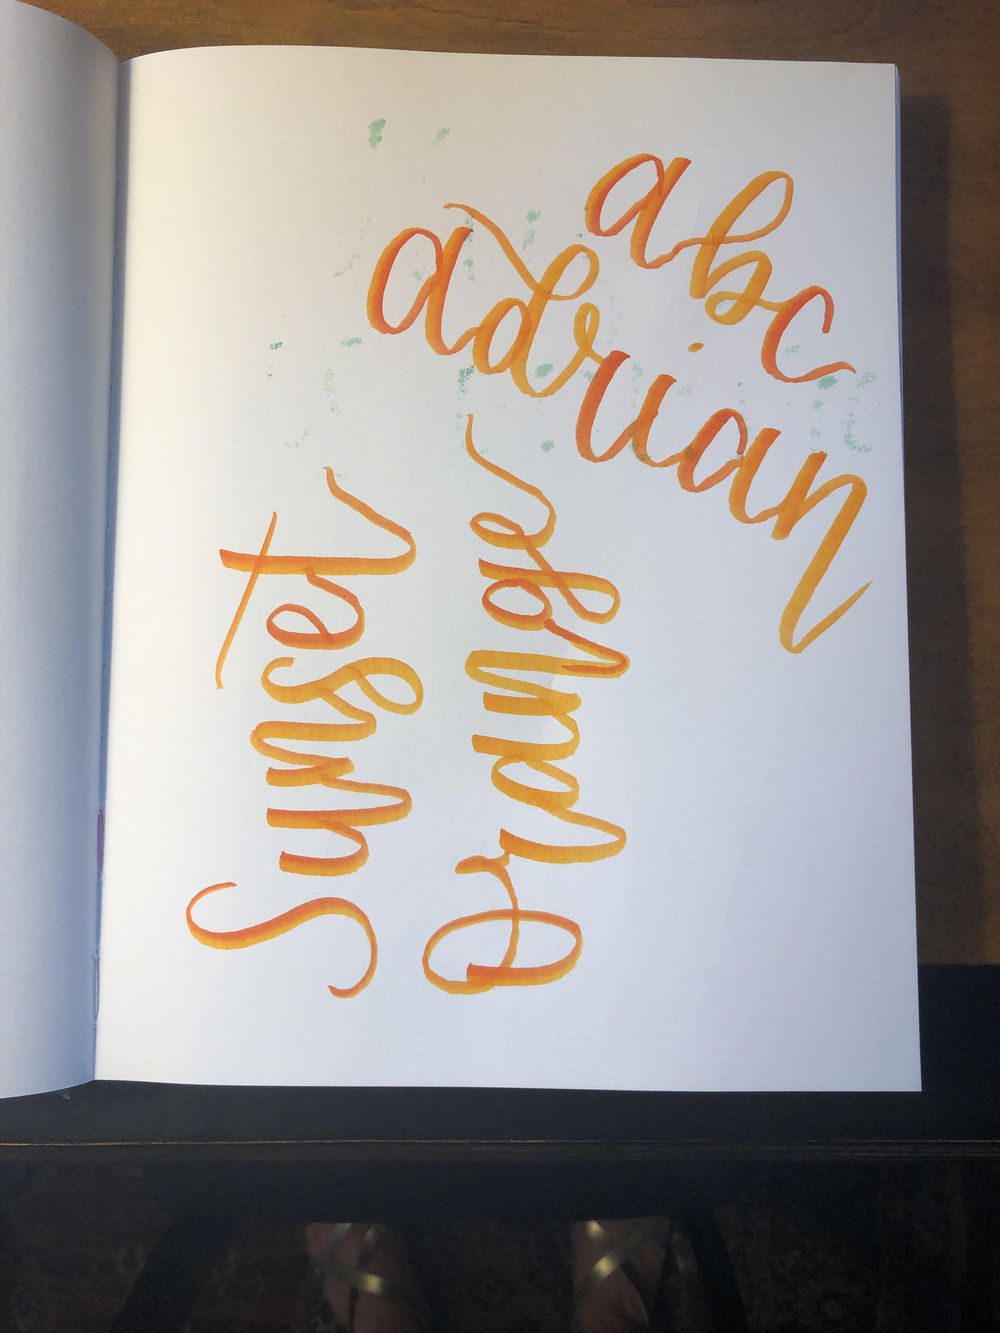 abc
adrian
Sunset
Orange